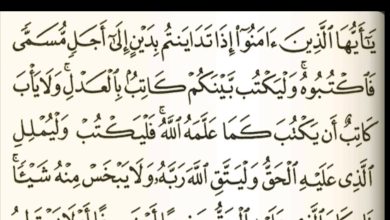 يَـٰٓأَيُّهَا ٱلَّذِينَ ءَامَنُوٓا۟ إِذَا تَدَايَنتُم بِدَيْنٍ إِلَىٰٓ أَجَلٍ مُّسَمًّى
فَٱكْتُبُوهُ ۚ وَلْيَكْتُب بَّيْنَكُمْ كَاتِبٌۢ بِٱلْعَدْلِ ۚ وَلَا يَأْبَ
كَاتِبٌ أَن يَكْتُبَ كَمَا عَلَّمَهُ ٱللَّهُ ۚ فَلْيَكْتُبْ وَلْيُمْلِلِ
ٱلَّذِى عَلَيْهِ ٱلْحَقُّ وَلْيَتَّقِ ٱللَّهَ رَبَّهُۥ وَلَا يَبْخَسْ مِنْهُ شَيْـًٔا ۚ